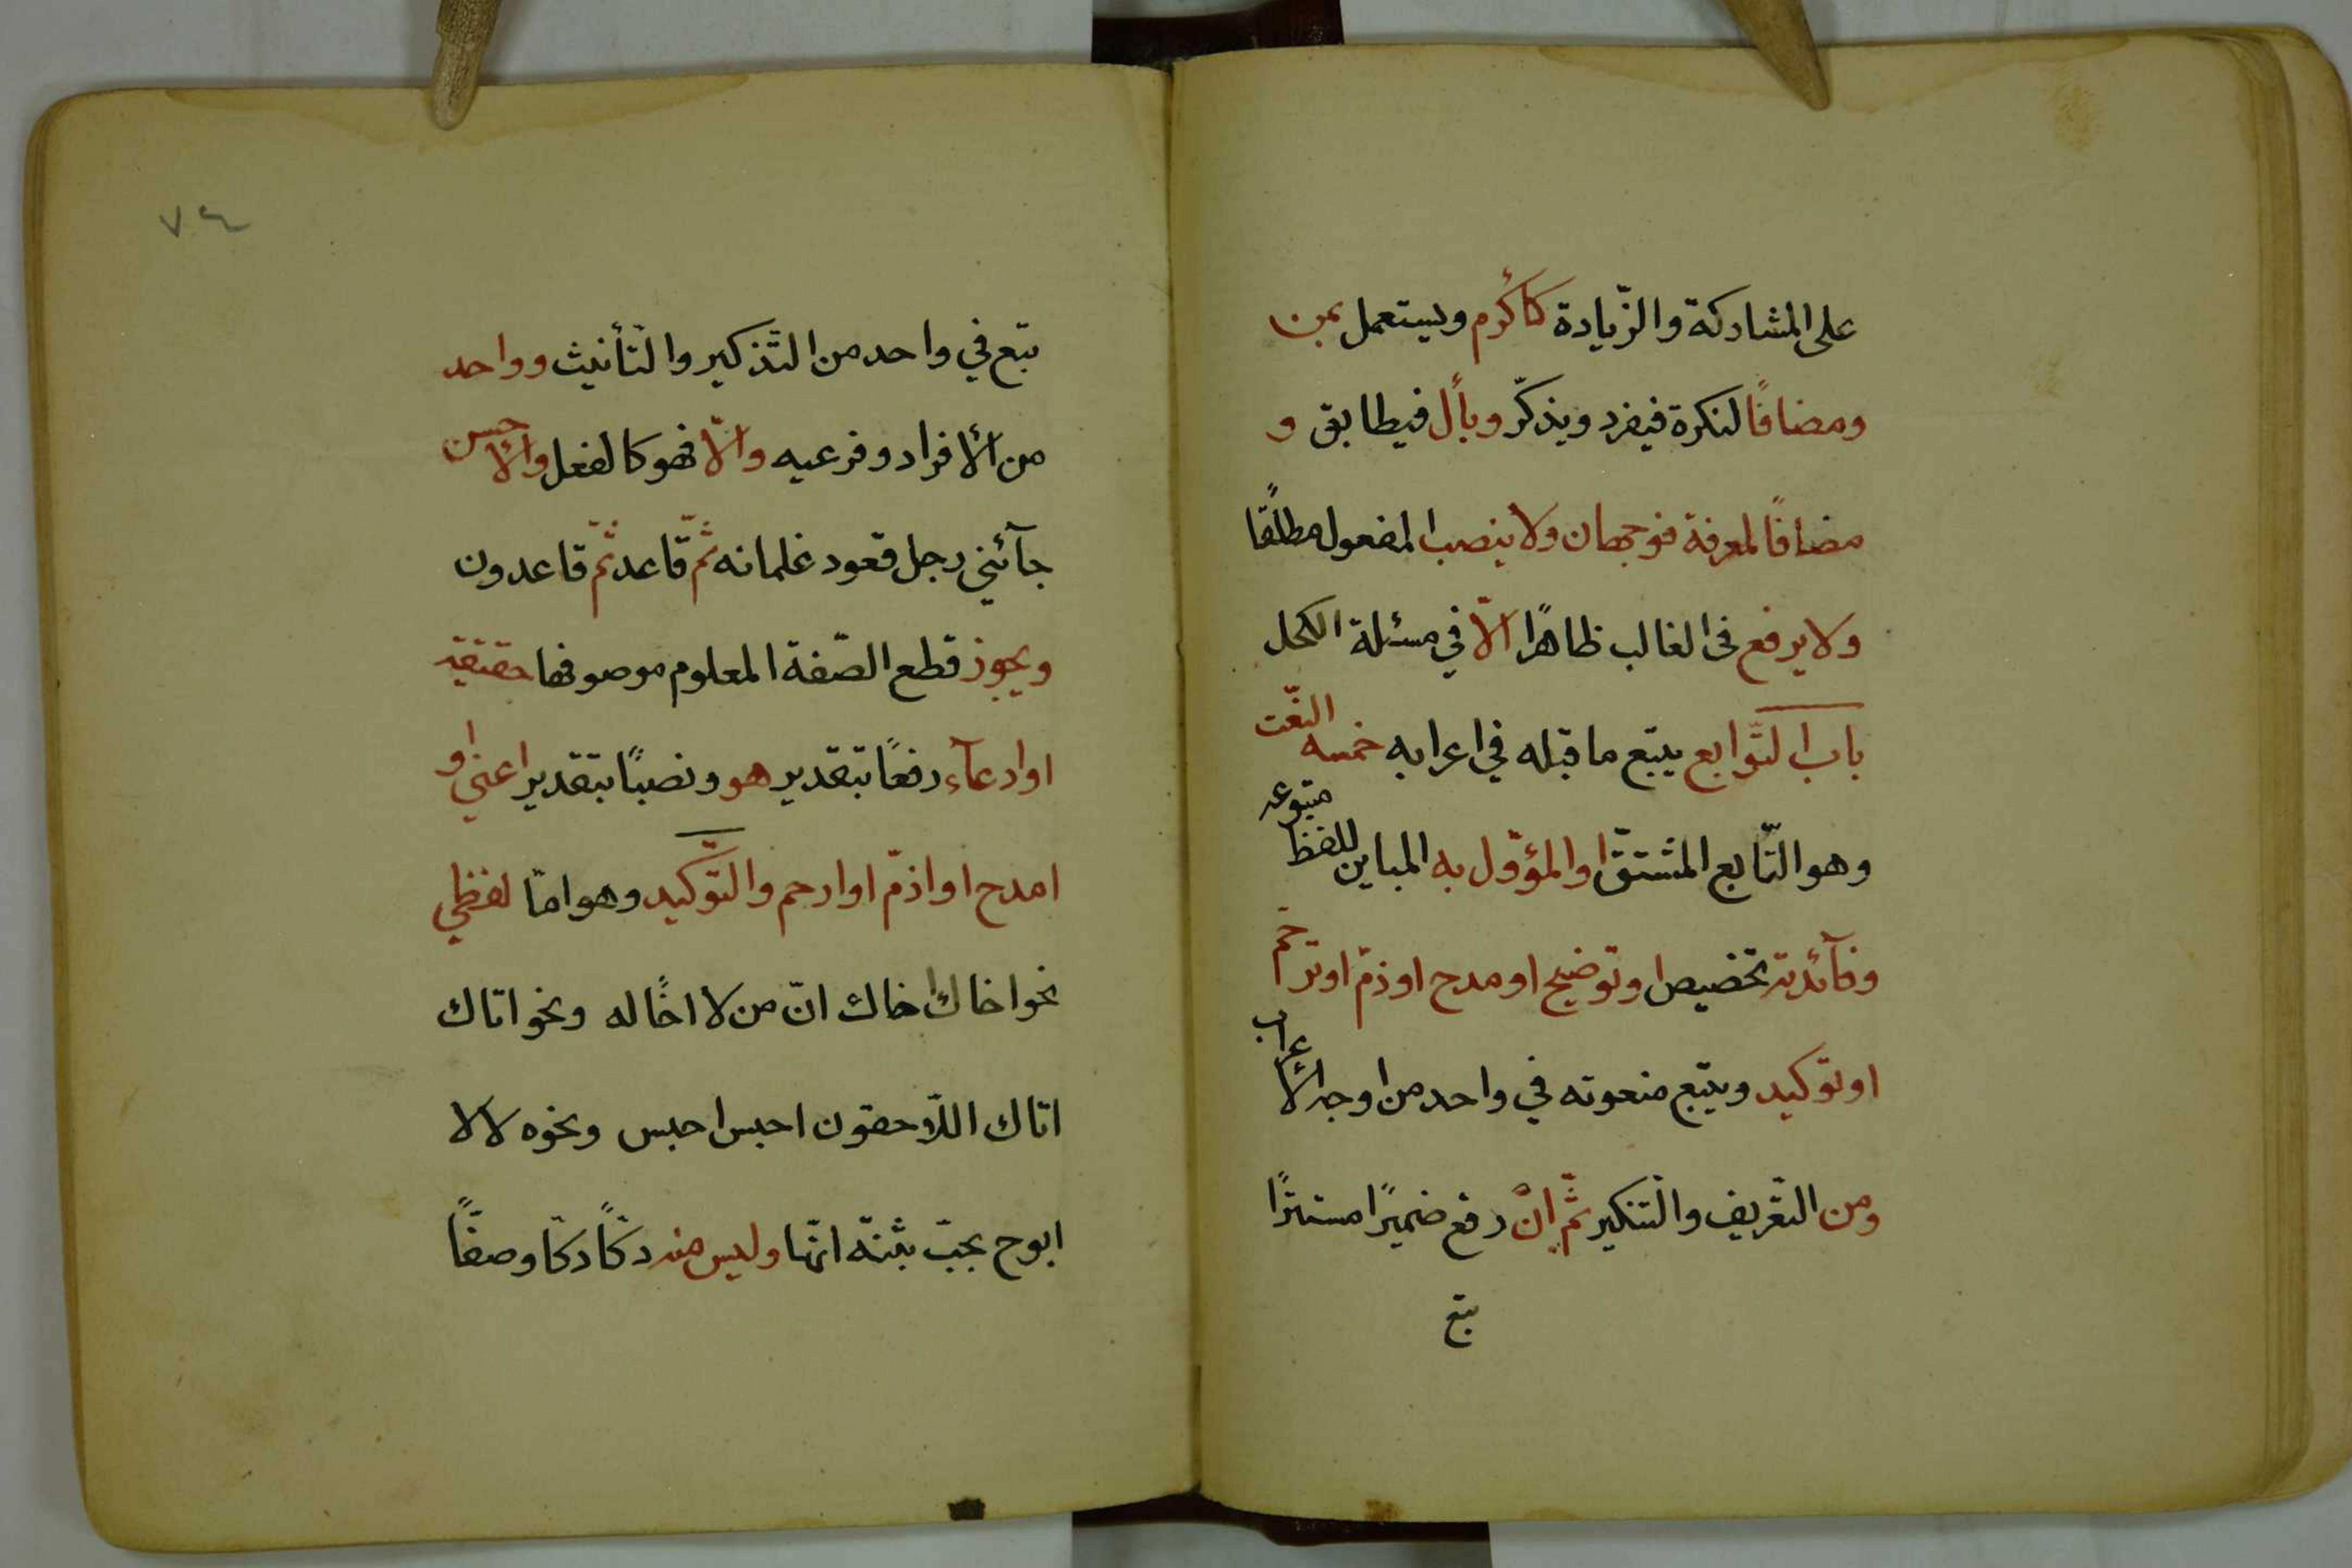 على المشاركة والزّيادة كأكرم ويستعمل بمن
ومضافًا لنكرة فيفرد ويذكّر وبأل فيطابق و
مضافًا لمعرفة فوجهان ولا ينصب المفعول مطلقًا
ولا يرفع فى الغالب ظاهرًا الّا في مسئلة الكحل
باب التّوابع يتبع ما قبله في اعرابه خمسه النّعت
وهو التّابع المشتقّ او المؤوّل به المباين للفظ متبوعه
وفآئدته تخصيص او توضيح او مدح او ذمّ او ترحّم
او توكيد ويتبع منعوته في واحد من اوجه الأعراب
ومن التعّريف والتّنكير ثمّ إنْ رفع ضميرًا مستترًا
تبع
٧٤
تبع في واحد من التّذكير والتّأنيث وواحد
من الأفراد وفرعيه والّا فهو كالفعل والأحسن
جآئني رجل قعود غلمانه ثمّ قاعد ثمّ قاعدون
ويجوز قطع الصّفة المعلوم موصوفها حقيقة
او ادعآء رفعًا بتقدير هو ونصبًا بتقدير اعني او
امدح او اذمّ او ارحم والتّوكيد وهو امّا لفظي
نحو اخاك اخاك انّ من لا اخًا له ونحو اتاك
اتاك اللّاحقون احبس احبس ونحوه لا لا
ابوح بحبّ بثنة انّها وليس منه دكًّا دكًّا وصفًّا